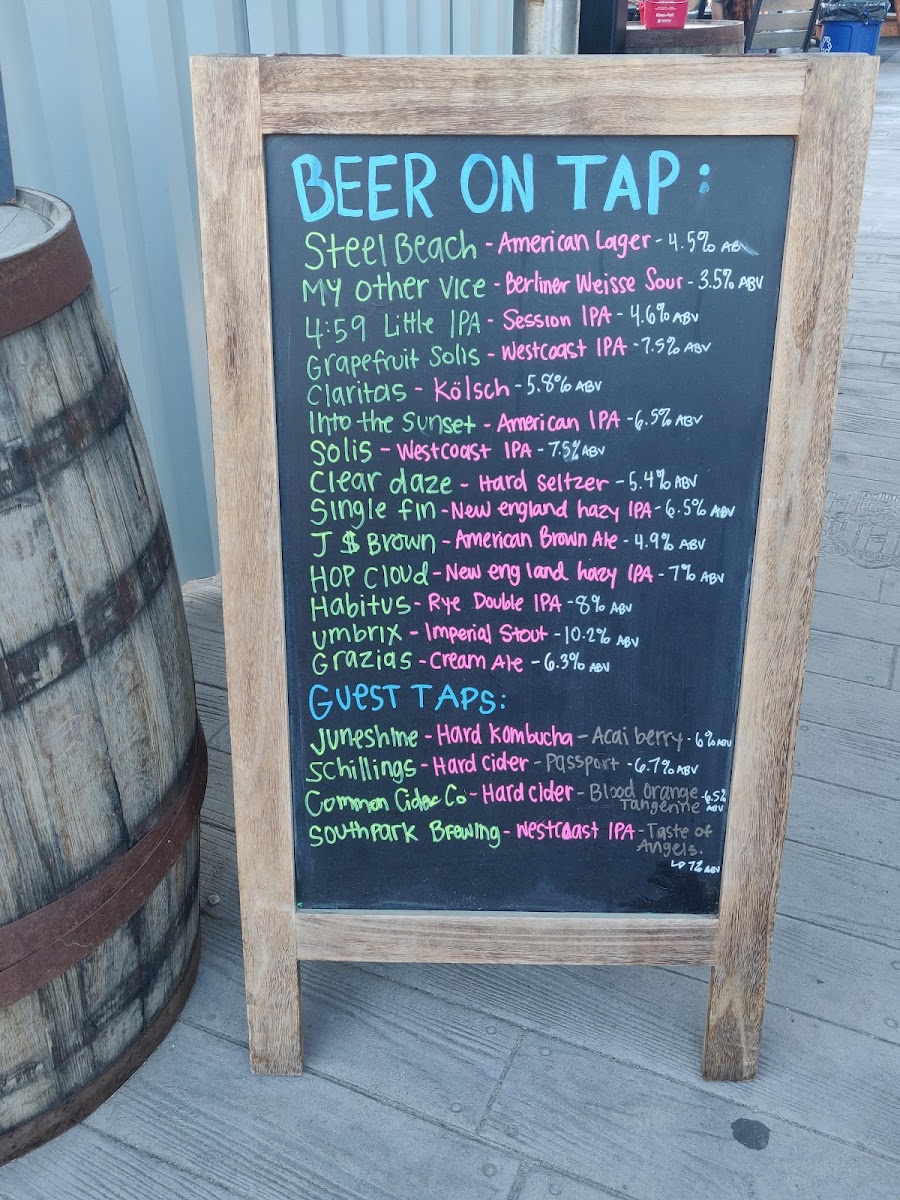 BEER ON TAP:
Steel Beach - American Lager - 4.5% ABV
My other vice - Berliner Weisse Sour - 3.5% ABV
4:59 Little IPA - Session IPA - 4.6% ABV
Grapefruit Solis - Westcoast IPA - 7.5% ABV
Claritas - Kölsch - 5.8% ABV
Into the Sunset - American IPA - 6.5% ABV
Solis - Westcoast IPA - 7.5% ABV
Clear daze - Hard Seltzer - 5.4% ABV
Single fin - New england hazy IPA - 6.5% ABV
J $ Brown - American Brown Ale - 4.9% ABV
HOP Cloud - New england hazy IPA - 7% ABV
Habitus - Rye Double IPA - 8% ABV
umbrix - Imperial Stout - 10.2% ABV
Grazias - Cream Ale - 6.3% ABV
GUEST TAPS:
Juneshine - Hard Kombucha - Acai berry - 6% ABV
Schillings - Hard Cider - Passport - 6.7% ABV
Common Cider Co - Hard cider - Blood Orange - 6.5%
Tangerine ABV
Southpark Brewing - Westcoast IPA - Taste of
Angels.
ABV